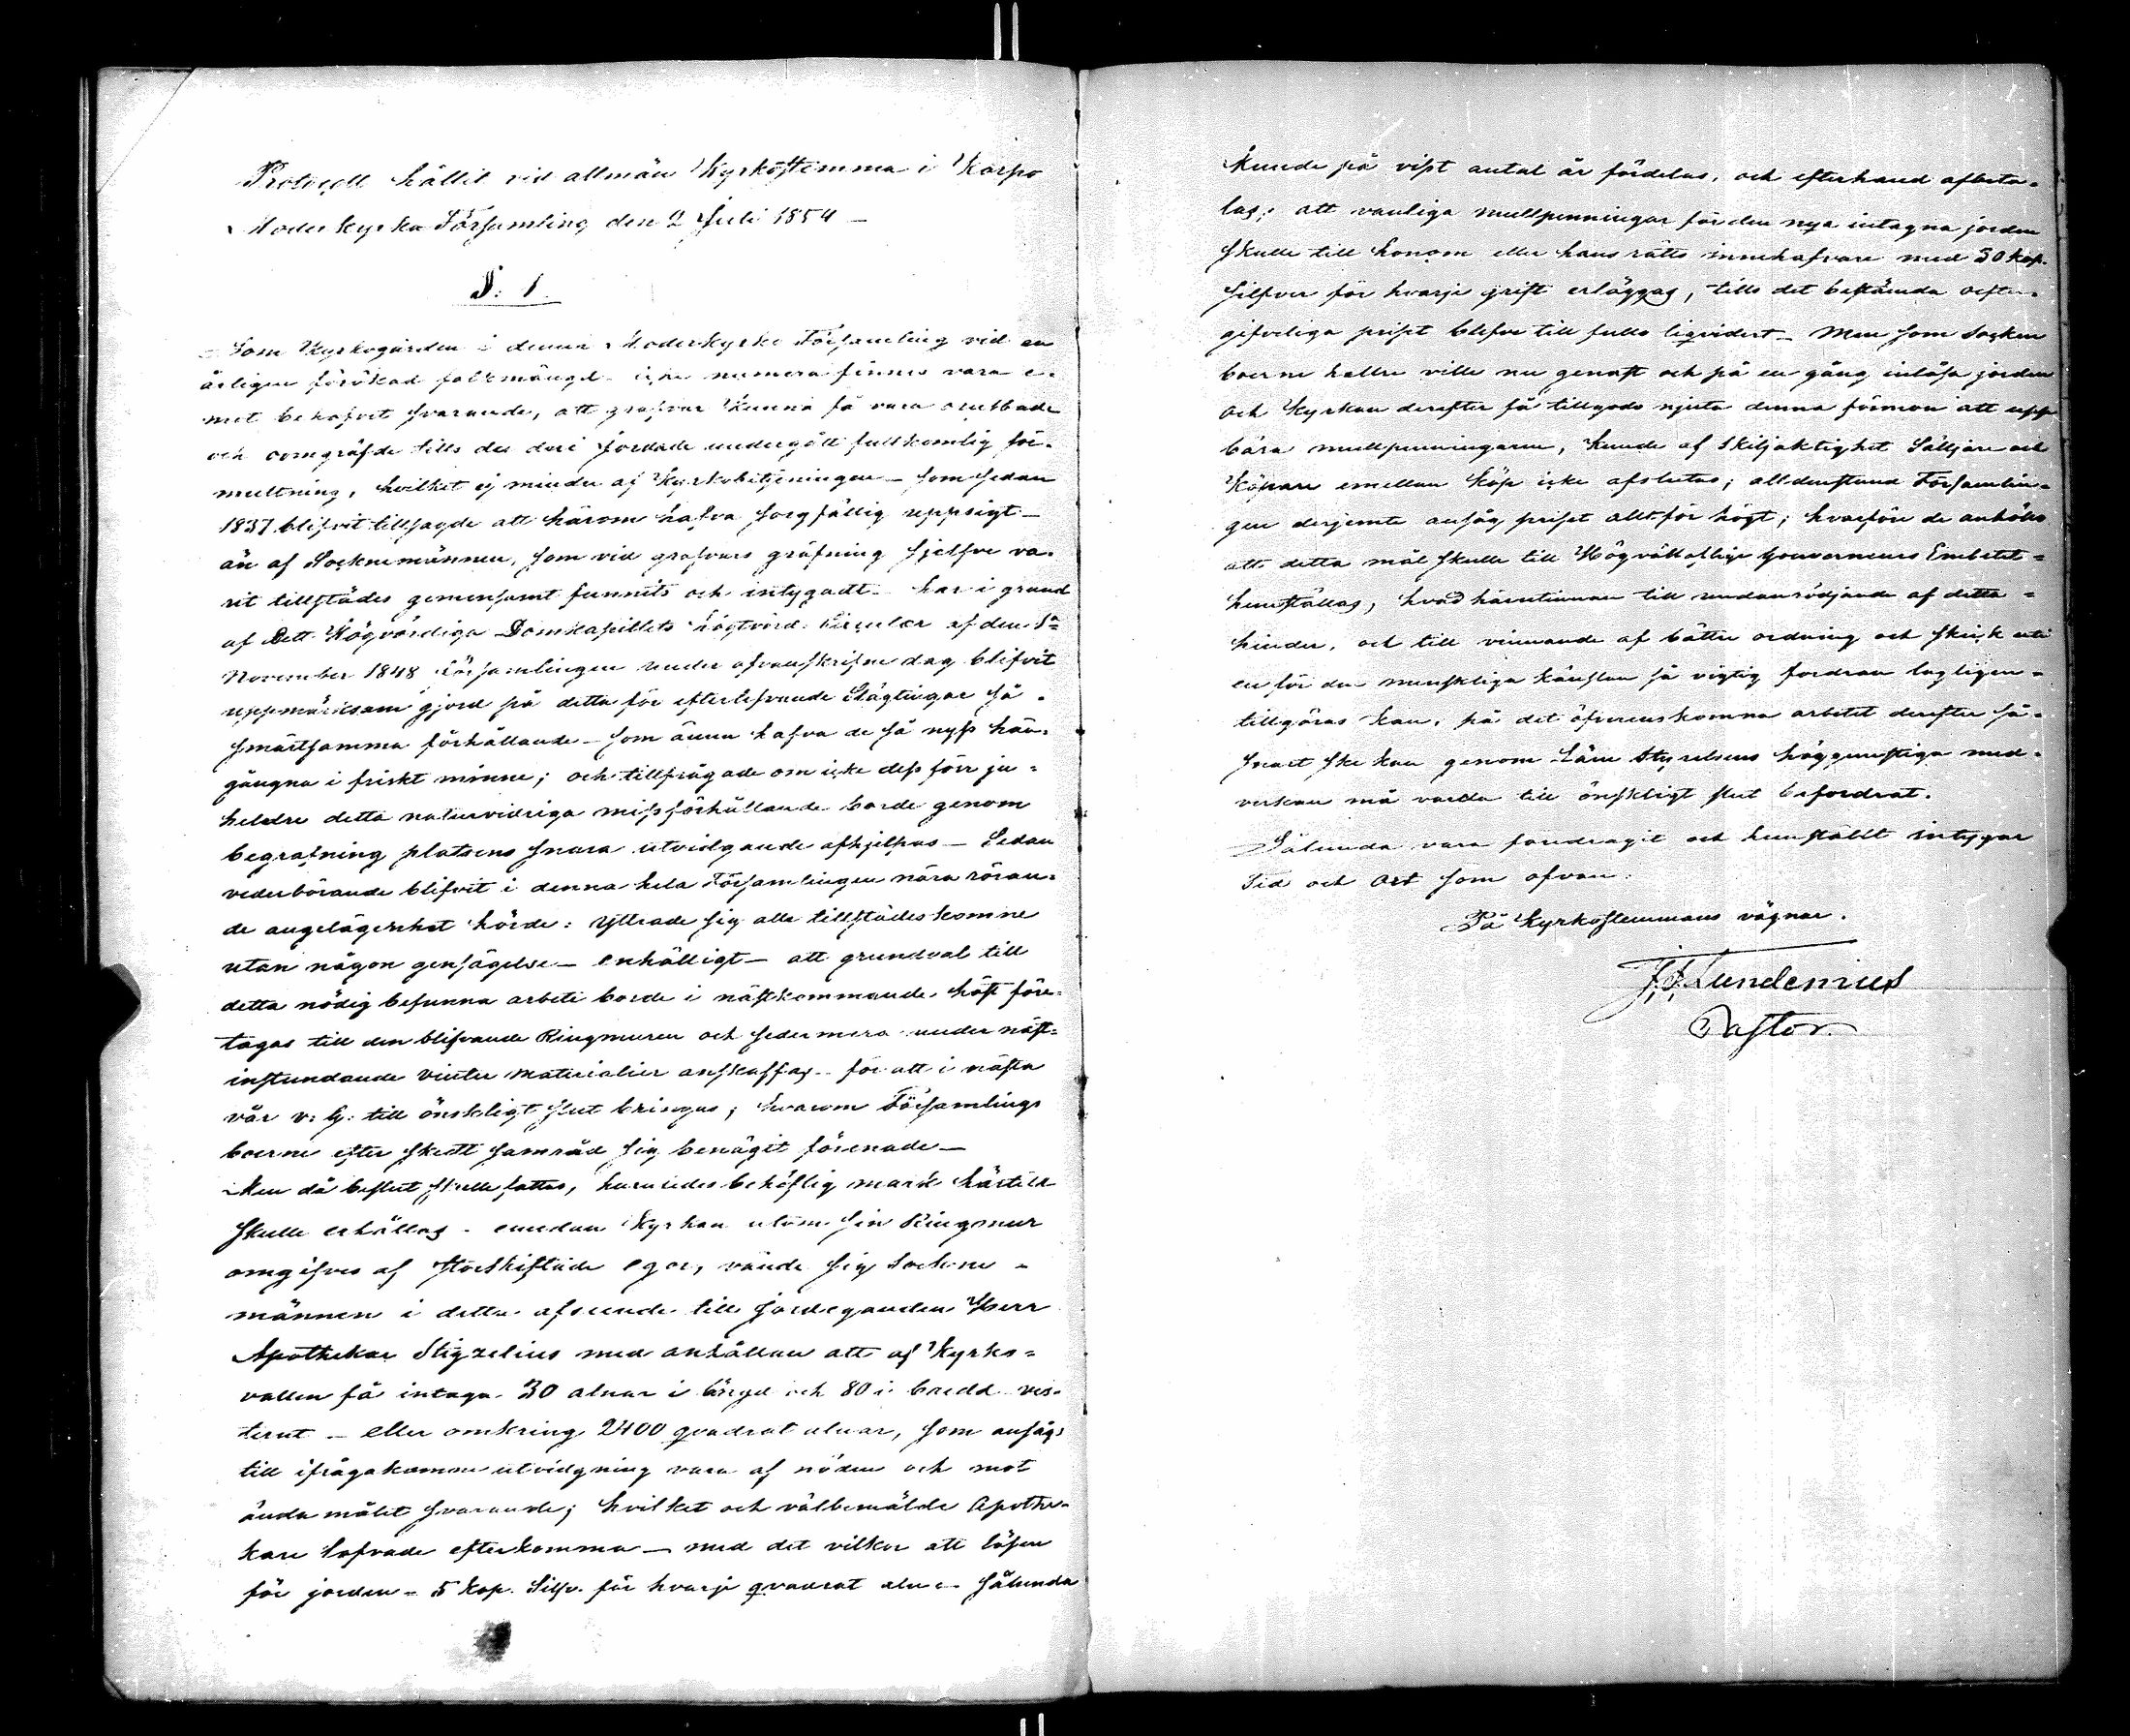 Protocoll hållit vid allmän Kyrkostämma i Korpo
Moderkyrko Församling den 2 Juli 1854 –
§: 1.
Som Kyrkogården i denna Moderkyrko Församling vid en
årligen förökad folkmängd icke numera finnes vara e-
mot behofvet svarande, att grafvar kunna få vara orubbade
och oomgräfde tills des deri jordade undergått fullkomlig för-
multning, hvilket ej mindre af Kyrkobetjeningen – som sedan
1837 blifvit tillsagde att härom hafva sorgfällig uppsigt –
än af Socknemännen, som vid grafvars gräfning sjelfve va-
rit tillstädes gemensamt funnits och intygadt – har i grund
af Dett Högvördiga Domkapitlets högtvörd. Circulær af den
November 1848 Församlingen under ofvanskrifne dag blifvit
uppmärksam gjord på detta för efterlefvande Slägtingar så
smärtsamma förhållande – som ännu hafva de så nyss hän-
gångna i friskt minne; och tillfrågade om icke dess förr ju
heldre detta naturvidriga missförhållande borde genom
begrafning platsens snara utvidgande afhjelpas – Sedan
vederbörande blifvit i denna hela Församlingen nära röran-
de angelägenhet hörde: yttrade sig alla tillstädeskomne
utan någon gensägelse – enhälligt – att grundval till
detta nödig befunna arbete borde i nästkommande höst före-
tagas till den blifvande Ringmuren och sedermera under näst-
instundande vinter materialier anskaffas – för att i nästa
vår v: G: till önskligt slut bringas; hvarom Församlings
boerne efter skedt samråd sig benägit förenade –
Men då beslut skulle fattas, huruledes behöflig mark härtill
skulle erhållas – emedan Kyrkan utom sin Ringmur
omgifves af storskiftade egor, vände sig Sockne-
männen i detta afseende till jordeganden Herr
Apothekar Stigzelius med anhållan att af Kyrko-
vallen få intaga 30 alnar i längd och 80 i bredd ves-
terut – eller omkring 2400 qvadrat alnar, som ansågs
till ifrågakomne utvidgning vara af nöden och mot
ända målet svarande; hvilket och välbemälde Apothe-
kare lofvade efterkomma – med det vilkor att lösen
för jorden – 5 kop. Silfv. för hvarje qvadrat aln – sålunda
kunde på visst antal år fördelas, och efterhand afbeta-
las; att vanliga mullpenningar för den nya intagna jorden
skulle till honom eller hans rätts innehafvare med 50 kop.
silfver för hvarje grift erläggas, tills det bestämda oefter-
gifveliga priset blefve till fullo liqviderat – Men som Socken
boerne hellre ville nu genast och på en gång inlösa jorden
och Kyrkan derefter få tillgodo njuta denna förmon att upp
bära mullpenningarne, kunde af skiljaktighet Säljare och
Köpare emellan köp icke afslutas; alldenstund Församlin-
gen derjemte ansåg priset alltför högt; hvarföre de anhöllo
att detta mål skulle till Högvällofliga Gouverneurs Embetet
hemställas, hvad härutinnan till undanrödjande af detta
hinder, och till vinnande af bättre ordning och skick uti
en för den menskliga känslan så vigtig fordran lagligen
tillgöras kan, på det öfverenskomna arbetet derefter så
snart ske kan genom Läne Styrelsens höggunstiga med-
verkan må varda till önskligt slut befordrat.
Sålunda vara föredragit och hemställt intygar
Tid och Ort som ofvan.
På Kyrkostemmans vägnar.
J. J. Lundenius
Pastor.